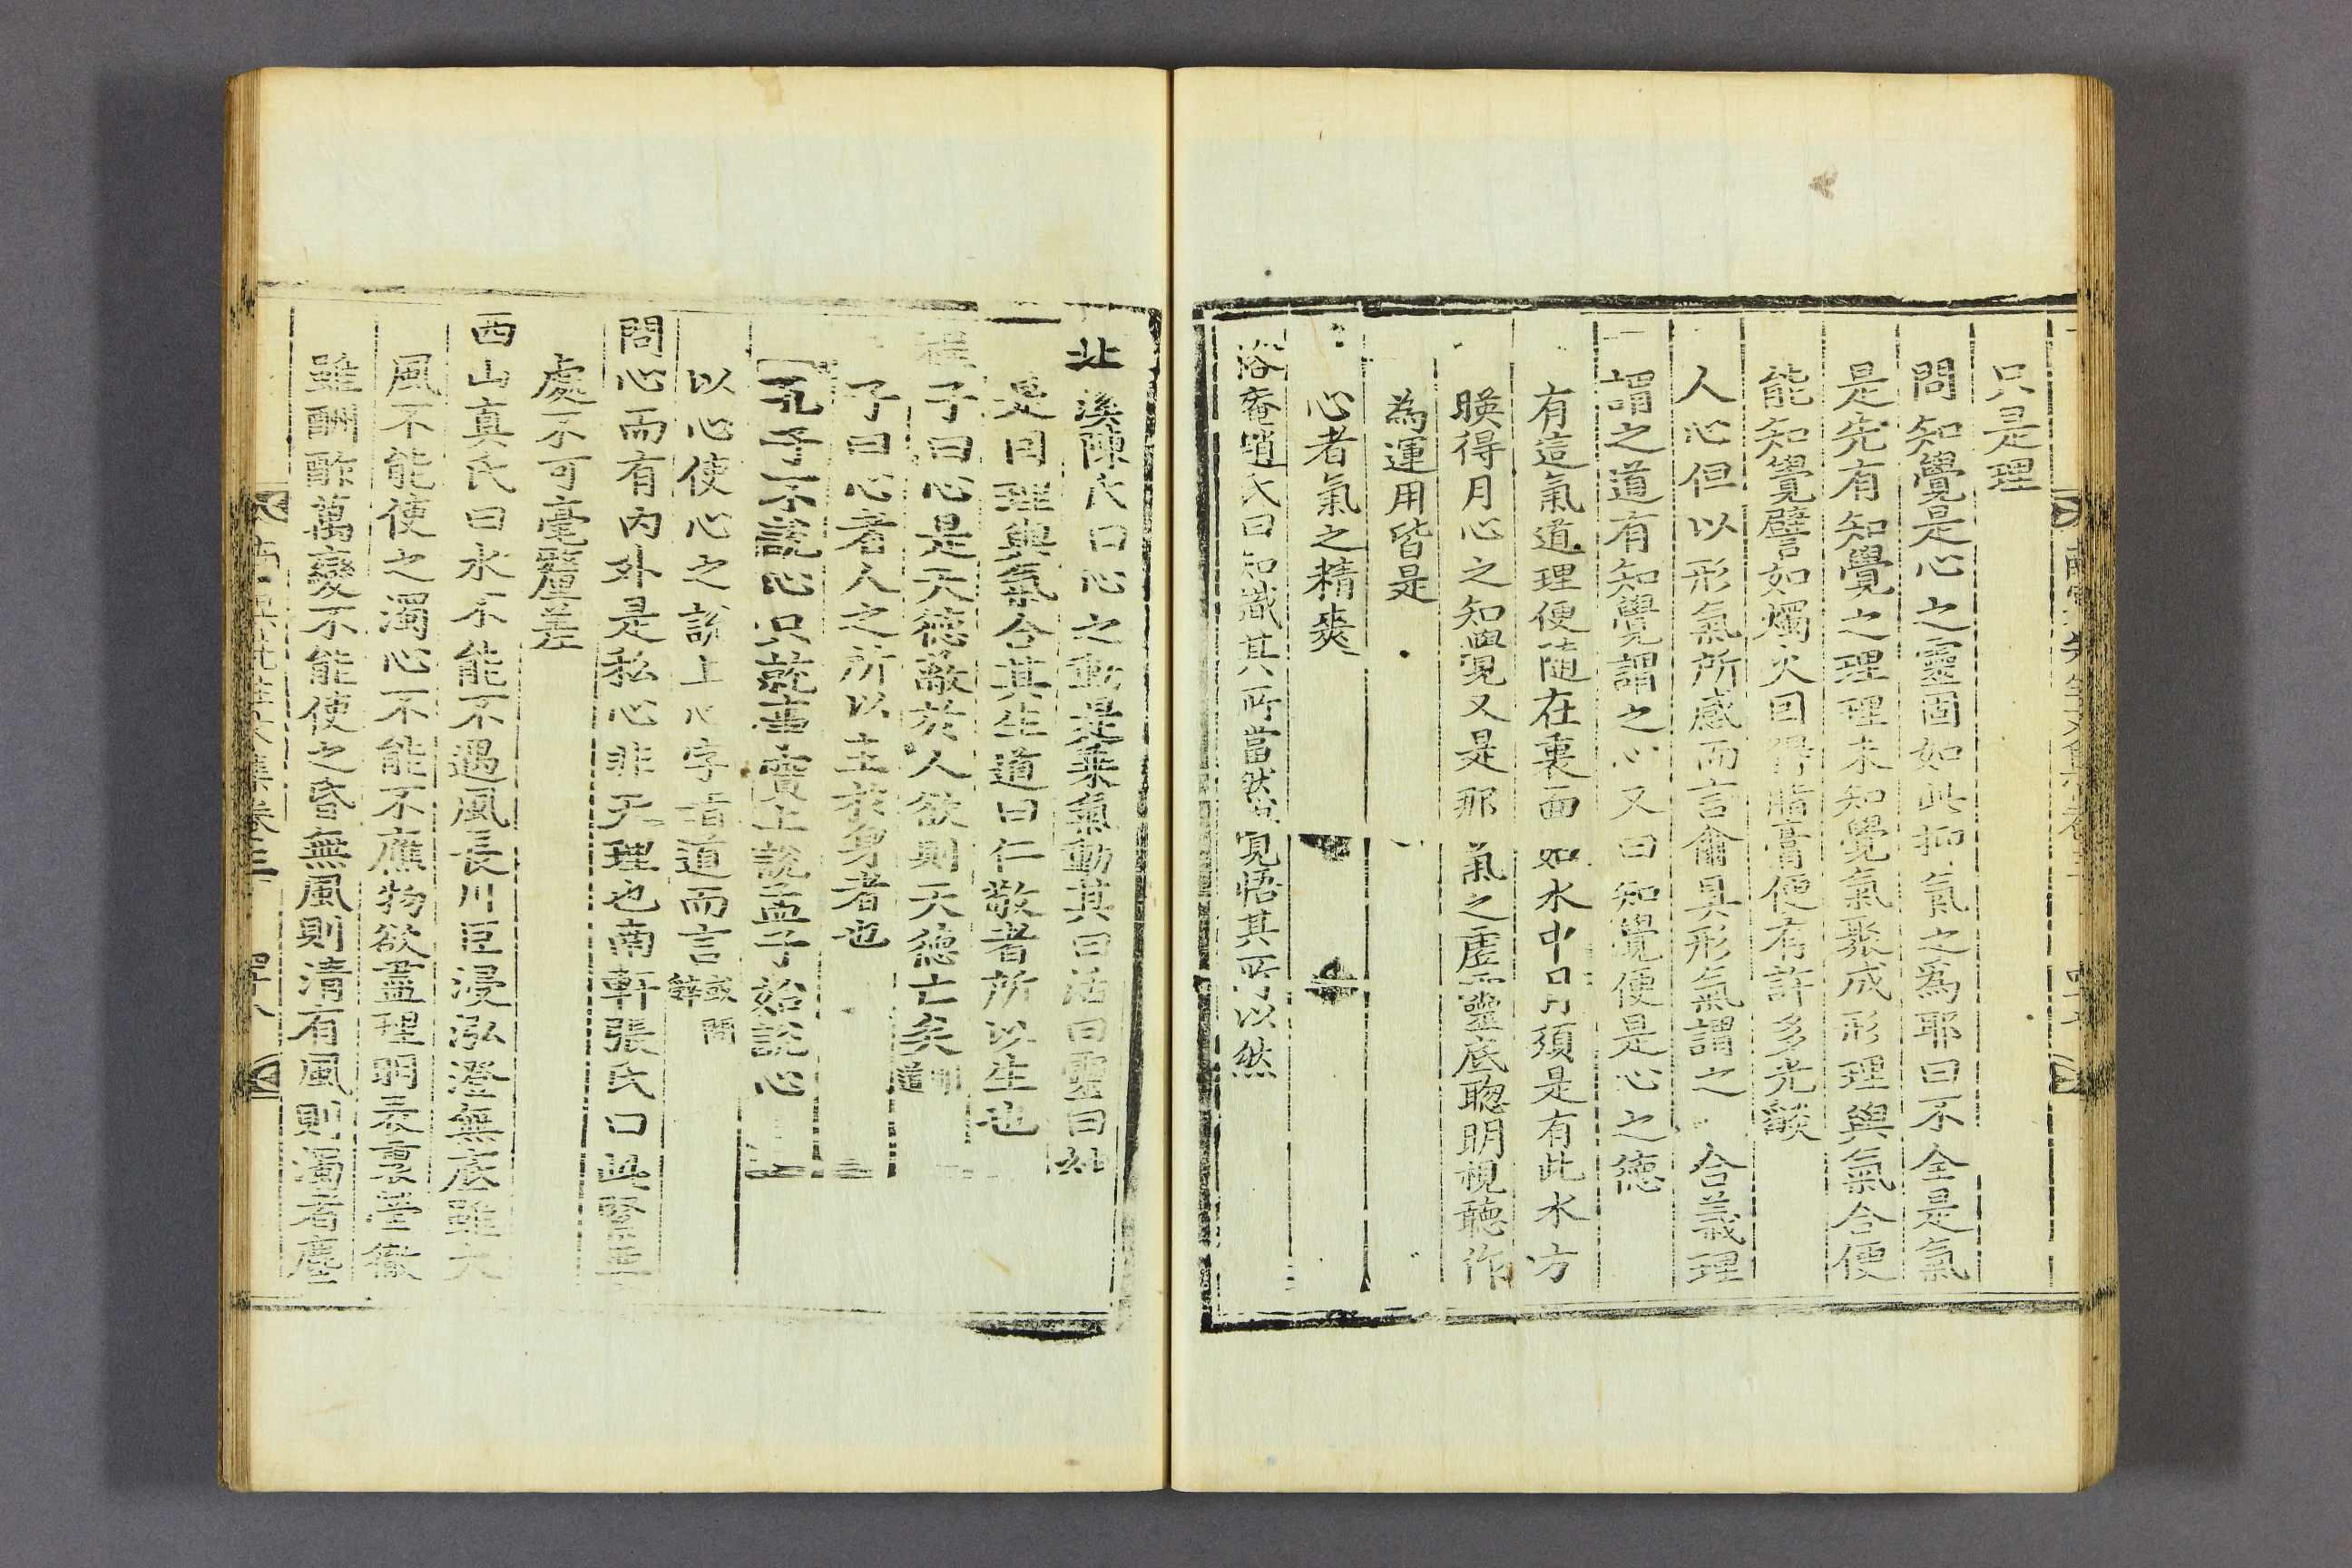 只是理
問知覺是心之靈固如此抑氣之爲耶曰不全是氣
是先有知覺之理理未知覺氣聚成形理與氣合便
能知覺譬如燭火因得脂膏便有許多光燄
人心但以形氣所感而言侖具形氣謂之 合義理
謂之道有知覺謂之心又曰知覺便是心之德
有這氣道理便随在裏面如水中月須是有此水方
暎得月心之知覺又是那氣之虛靈底聰明視聽作
為運用皆是
心者氣之精爽
曰知識其所當然 覺悟其所以然
北溪陳氏曰心之動是乘氣動其曰活曰靈曰
是因理與氣合其生道曰仁敬者所以生也
程子曰心是天德敵於人欲則天德亡矣
子曰心者人之所以主於身者也
孔子不說心只就事實上說孟子始說心
以心使心之說上心字指道而言 或問
問心而有內外是私心非天理也南軒張氏曰此緊要
處不可毫釐差
西山真氏曰水不能不遇風長川巨浸泓澄無底雖大
風不能使之濁心不能不應物欲盡理明表裏瑩徹
雖酬酢萬變不能使之昏無風則清有風則濁者塵